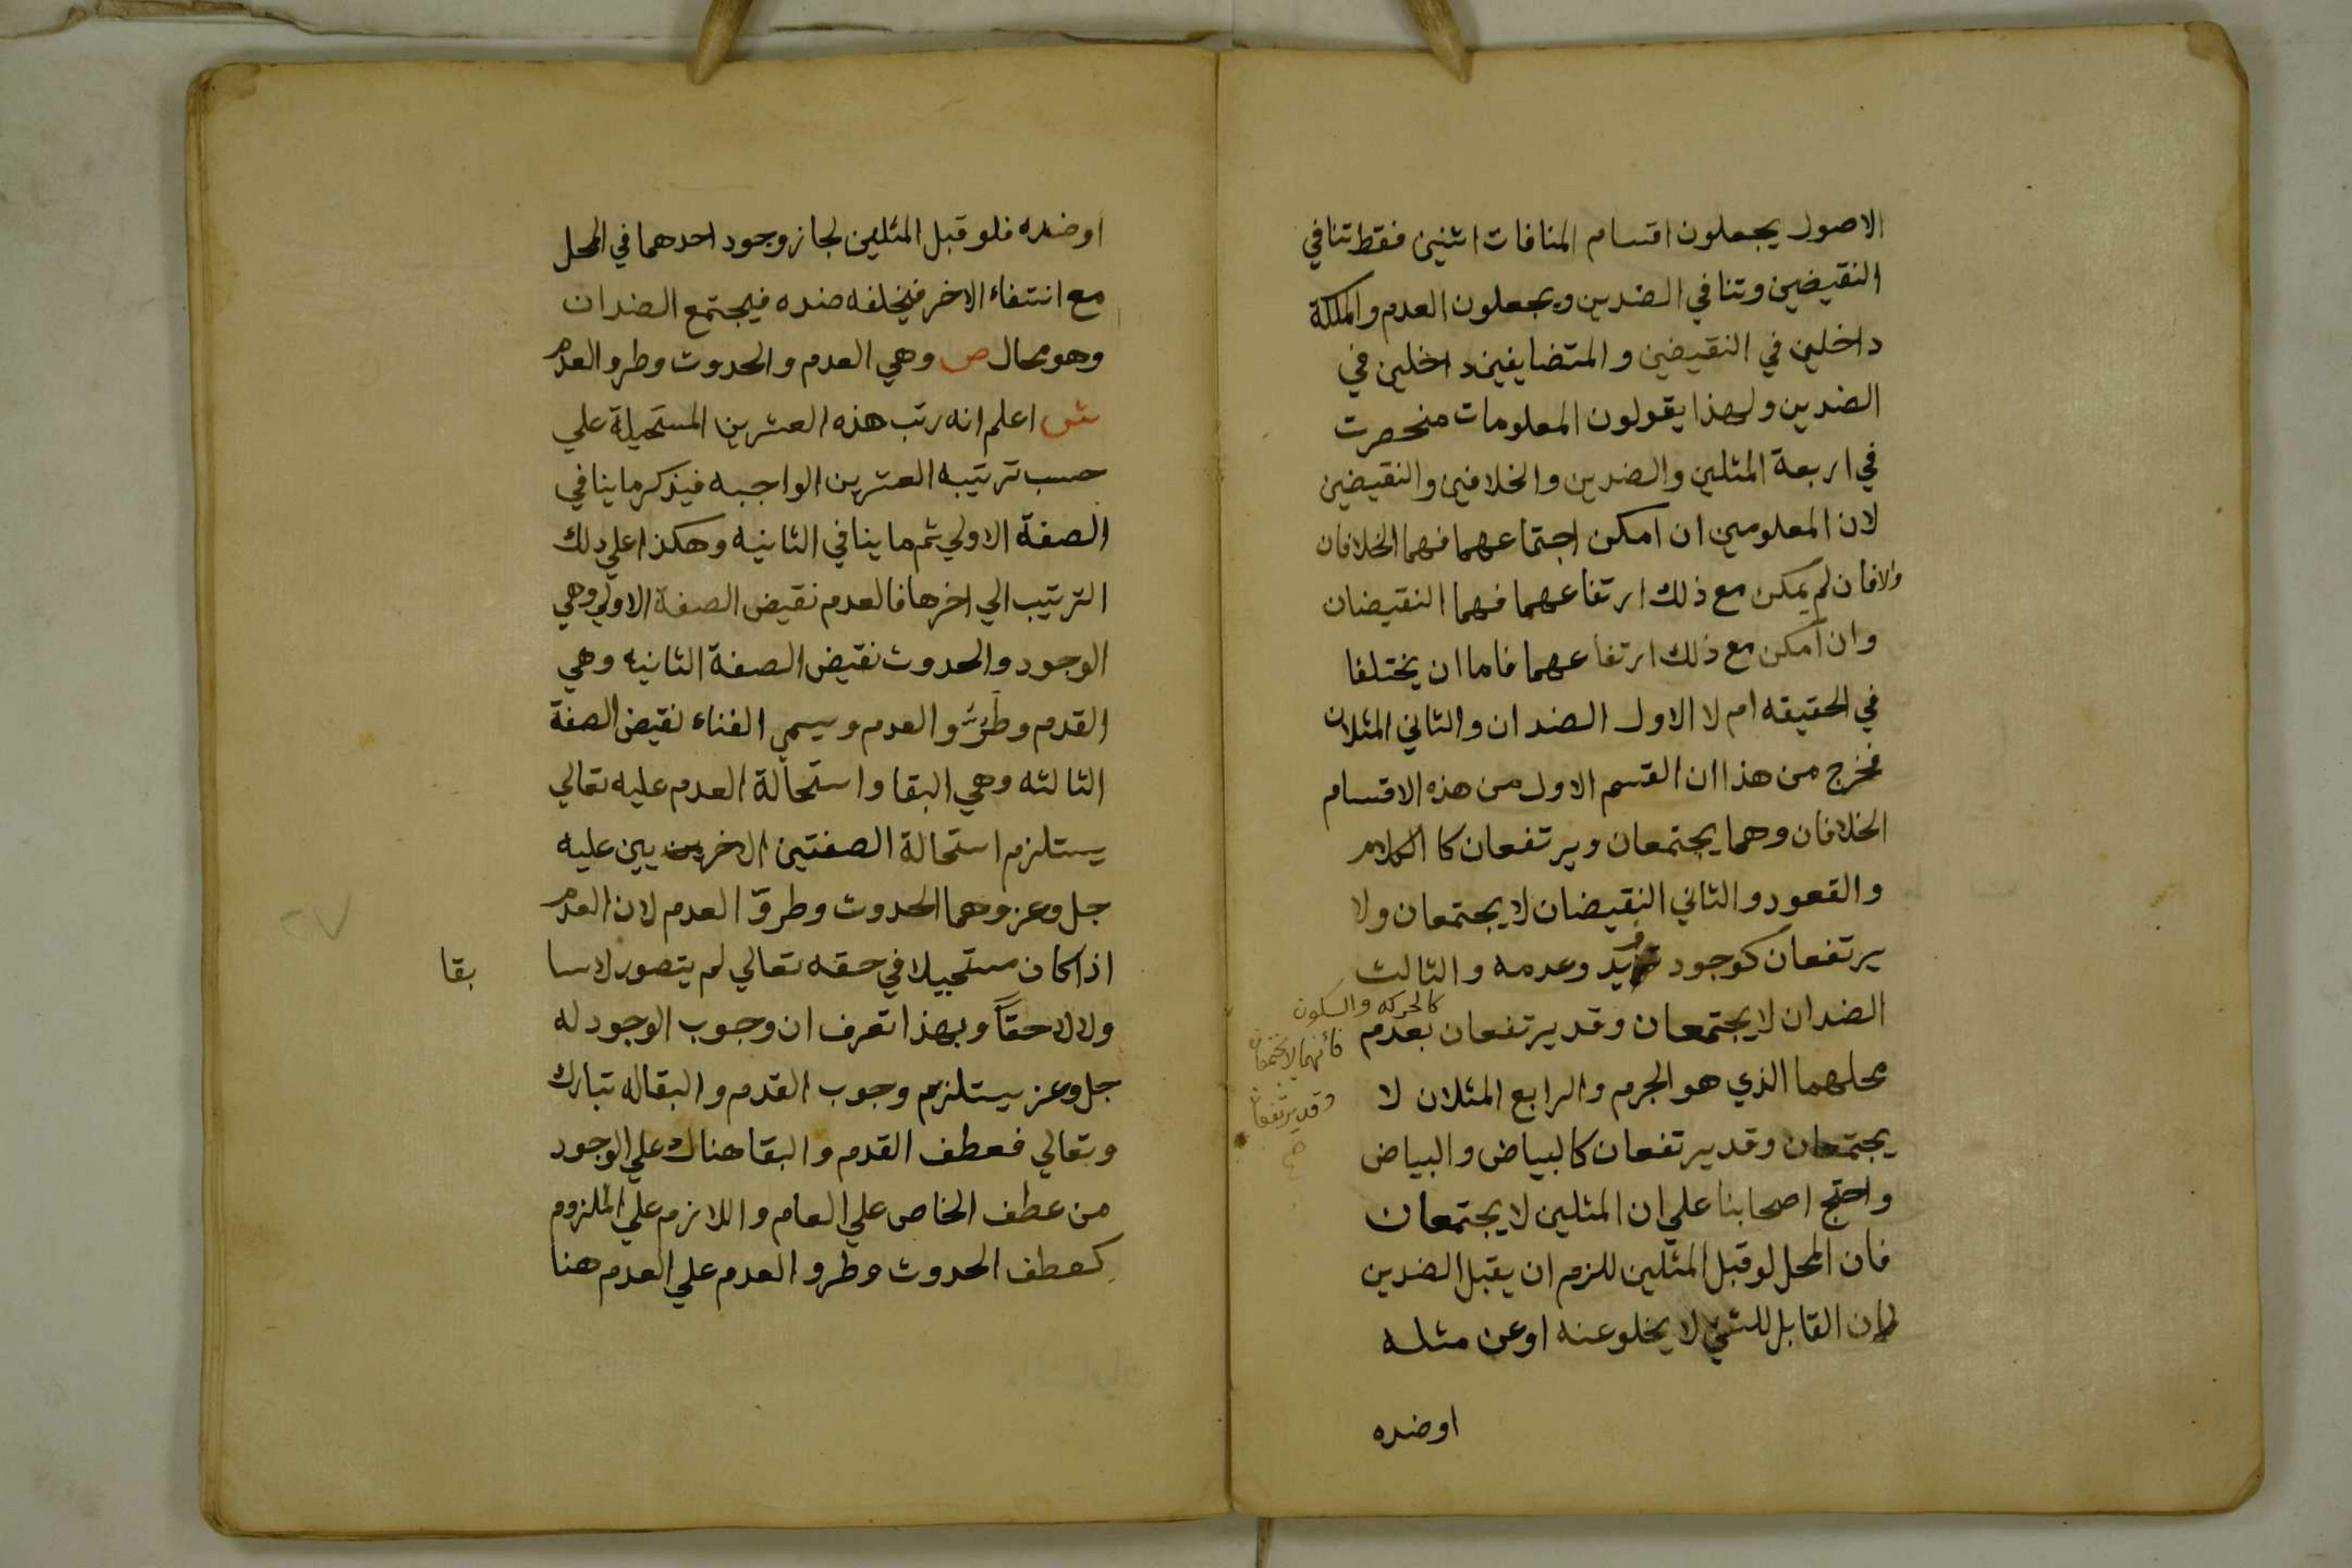 الاصول يجعلون اقسام المنافات اثنين فقط تنافي
النقيضين وتنافي الضدين ويجعلون العدم والملكة
داخلين في النقيضين والمتضايفين داخلين في
الضدين ولهذا يقولون المعلومات منحصرت
في اربعة المثلين والضدين والخلافين والنقيضين
لان المعلومين ان امكن اجتماعهما فهما الخلافان
والا فان لم يمكن مع ذلك ارتفاعهما فهما النقيضان
وان امكن مع ذلك ارتفاعهما فاما ان يختلفا
في الحقيقه ام لا الاول الضدان والثاني المثلان
فخرج من هذا ان القسم الاول من هذه الاقسام
الخلافان وهما يجتمعان ويرتفعان كا الكلام
والقعود والثاني النقيضان لا يجتمعان ولا
يرتفعان كوجود زيد وعدمه والثالث
الضدان لا يجتمعان وقد يرتفعان بعدم
كالحركه والسكون
فأنهما لا يجتمعان
وقد يرتفعان
صح
محلهما الذي هو الجرم والرابع المثلان لا
يجتمعان وقد يرتفعان كالبياض والبياض
واحتج اصحابنا علي ان المثلين لا يجتمعان
فان المحل لو قبل المثلين للزم ان يقبل الضدين
فان القابل للشئ لا يخلو عنه او عن مثله
او ضده
او ضده فلو قبل المثلين لجاز وجود احدهما في المحل
مع انتفاء الاخر فيخلفه ضده فيجتمع الضدان
وهو محال ص وهي العدم والحدوث وطرو العدم
ش اعلم انه رتب هذه العشرين المستحيلة علي
حسب ترتيبه العشرين الواجبه فيذكر ما ينافي
الصفة الاولي ثم ما ينافي الثانيه وهكذا علي ذلك
الترتيب الي اخرها فالعدم نقيض الصفة الاولي وهي
الوجود والحدوث نقيض الصفة الثانيه وهي
القدم وطرو العدم ويسمي الفناء نقيض الصفة
الثالثه وهي البقا واستحالة العدم عليه تعالي
يستلزم استحالة الصفتين الاخريين عليه
جل وعز وهما الحدوث وطروّ العدم لان العدم
اذا كان مستحيلا في حقه تعالي لم يتصور لا سا
بقا
ولا لاحقاً وبهذا تعرف ان وجوب الوجود له
جل وعز يستلزم وجوب القدم والبقا له تبارك
وتعالي فعطف القدم والبقا هناك علي الوجود
من عطف الخاص علي العام واللازم علي الملزوم
كعطف الحدوث وطرو العدم علي العدم هنا